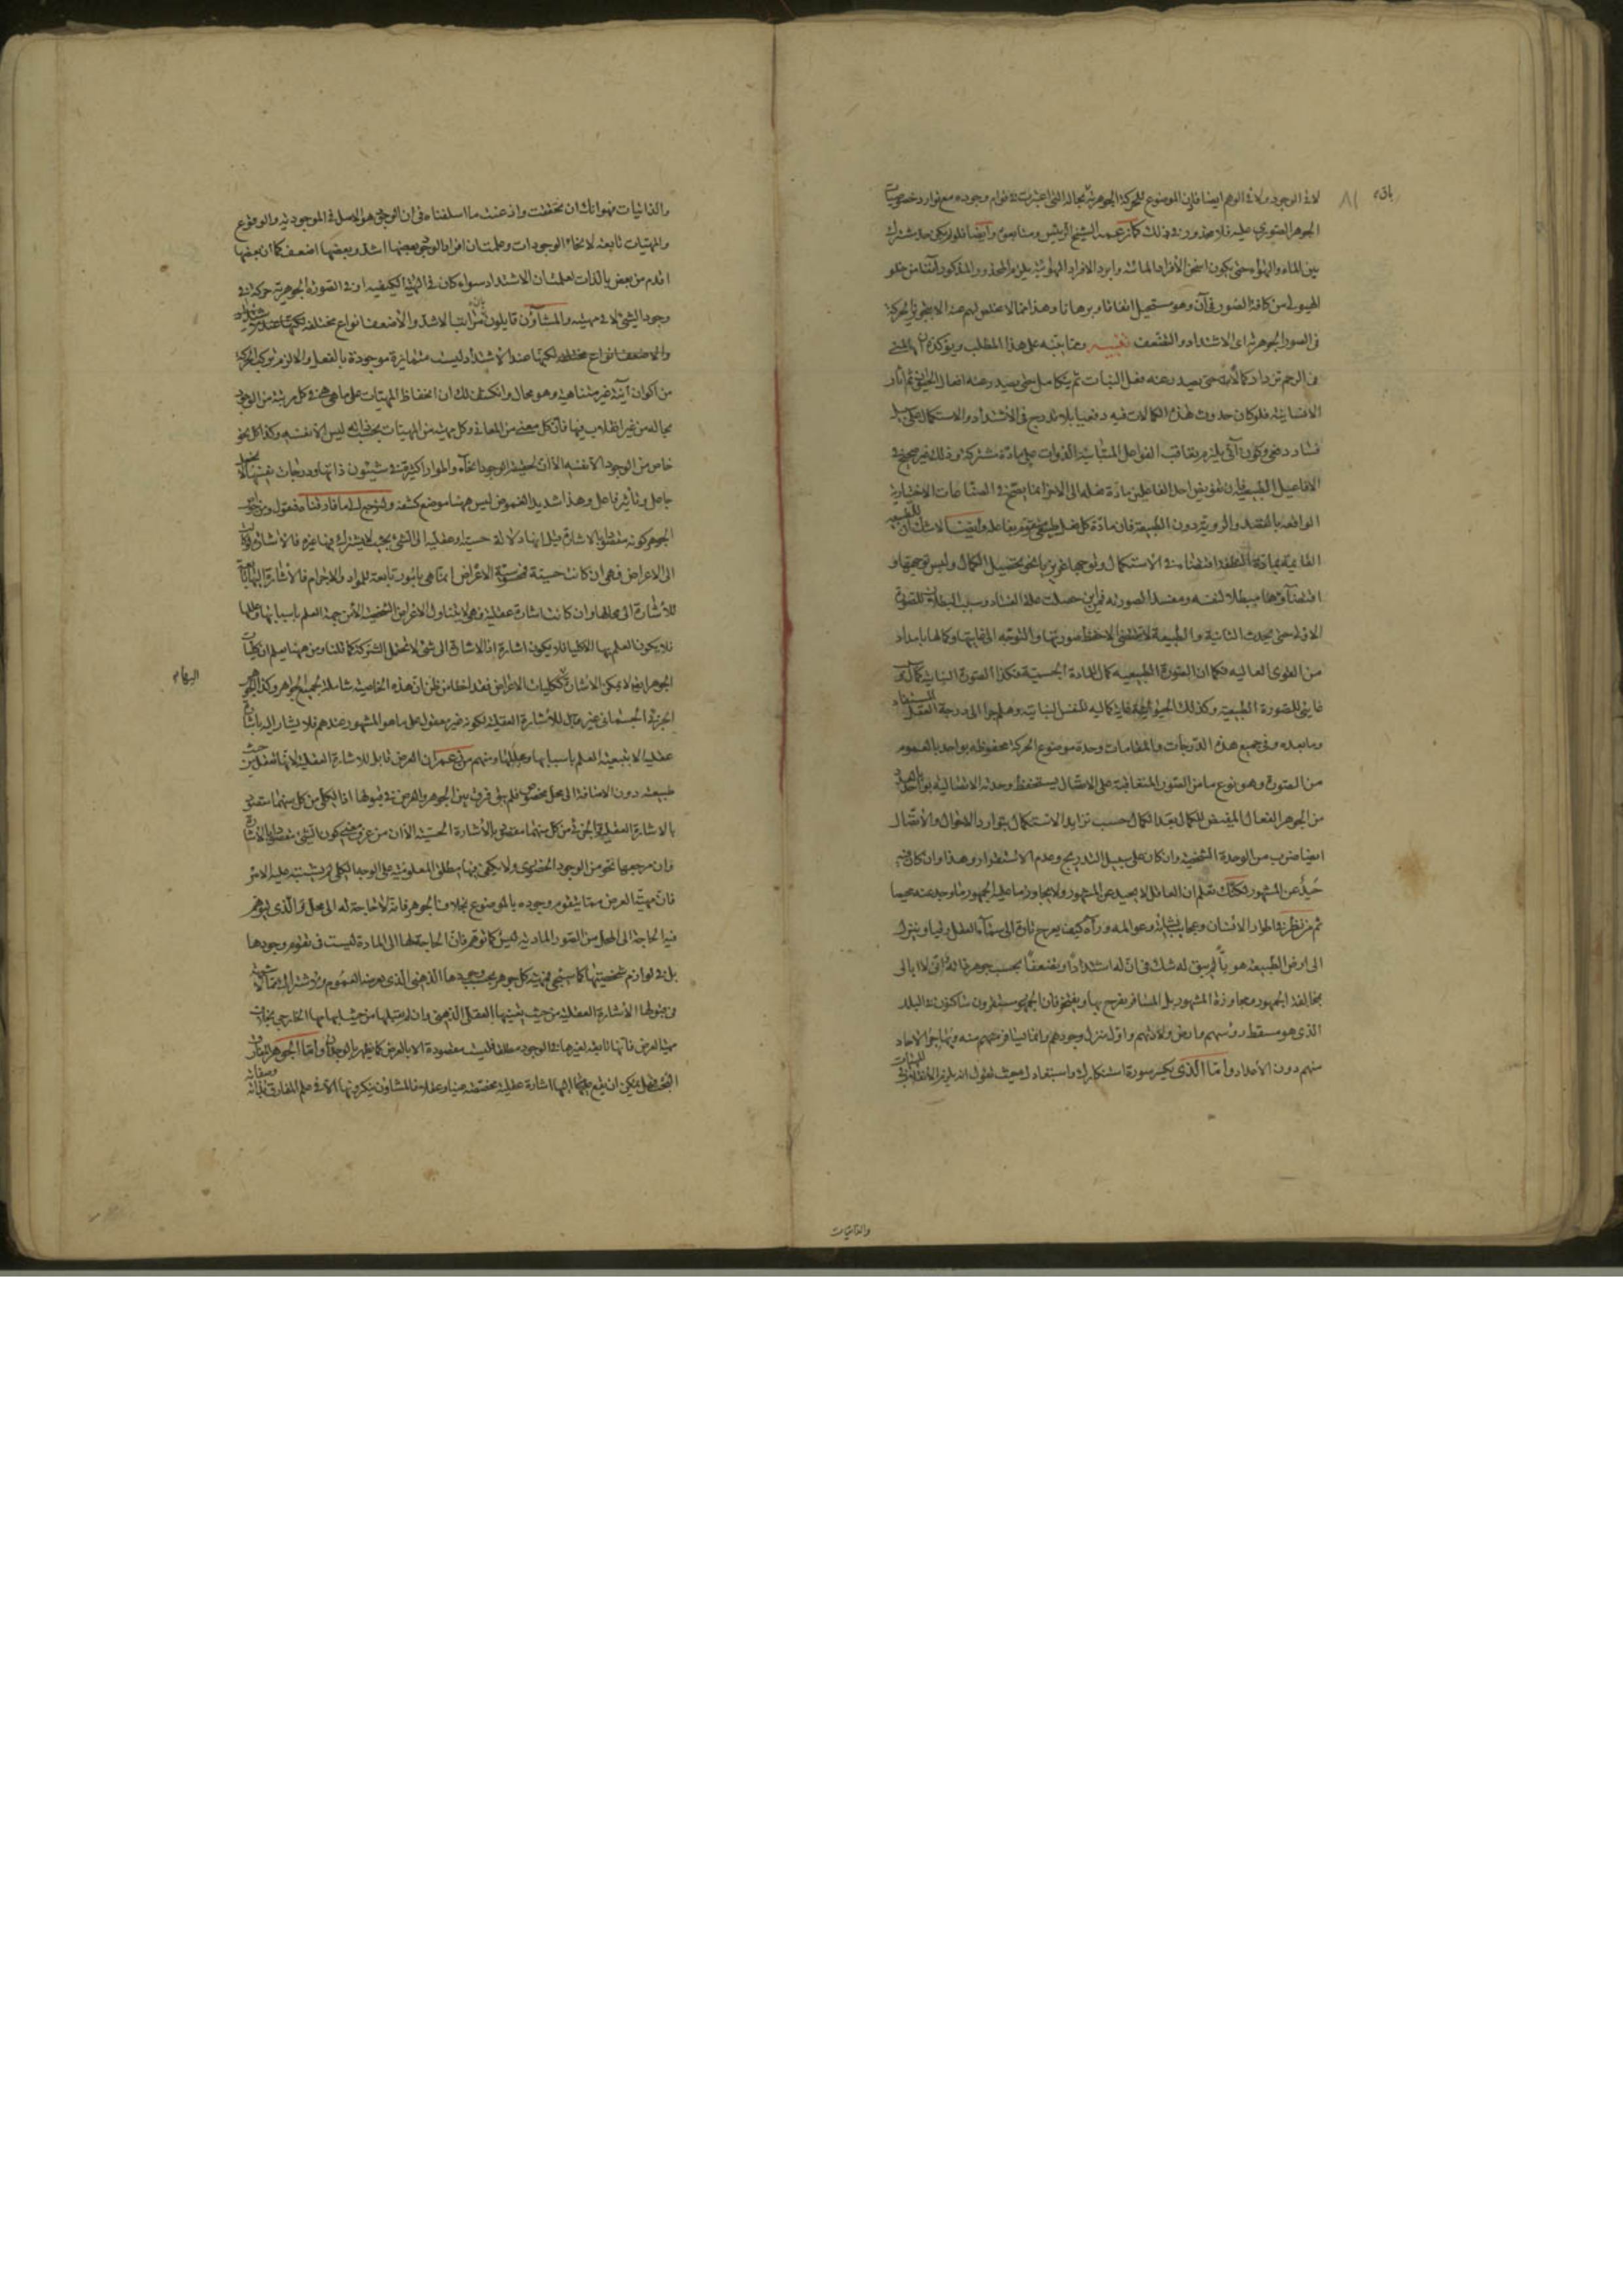 لا فى الوجود ولا فى الوهم ايضا فاين الموضوع للحركة الجوهرية بحاله التى اعتبرت فى قوام وجوده مع توارد خصوصيات
الجوهر الصورى عليه فلا محذور فى ذلك كما زعمه الشيخ الرئيس ومتابعوه وايضا فلو لم يكن حد مشترك
بين الماء والهواء حتى يكون اسخن الافراد المائية وابرد الافراد الهوائية يلزم المحذور المذكور آنفا من خلو
الهيولى من كافة الصور فى آن وهو مستحيل اتفاقا وبرهانا وهذا مما لا مخلص لهم عنه الا بتجويز الحركة
فى الصور الجوهرية اى الاشتداد والتضعف تنبيه ومما ينبه على هذا المطلب ويؤكده ان المنى
فى الرحم تزداد كمالا حتى يصدر عنه فعل النبات ثم يتكامل حتى يصدر عنه افعال الحيوان ثم آثار
الانسانية فلو كان حدوث هذه الكمالات فيه دفعيا بلا تدرج فى الاشتداد والاستكمال على سبيل
فساد دفعى وكون آنى يلزم تعاقب الفواعل المتباينة الذوات على مادة مشتركة وذلك غير صحيح فى
الافاعيل الطبيعية فان تفويض احد الفاعلين مادة فعله الى الاخر انما يصح فى الصناعات الاختيارية
الواقعة بالقصد والروية دون الطبيعة فان مادة كل فعل طبيعى متقوم بفاعله وايضا لا شك ان للطبيعة
القائمة بمادة النطفة اقتضاء منه الاستكمال وتوجها غريزيا نحو تحصيل الكمال وليس توجيهها و
اقتضاؤها مبطلا لنفسه ومفسدا لصورته فمن اين حصلت علة الفساد وسبب البطلان للصورة
الاولى حتى يحدث الثانية والطبيعة لا تقتضى الا حفظ صورتها والتوجه الى غايتها وكمالها بامداد
من القوى العالية فكما ان الصورة الطبيعية كمال المادة الجسمية فكذا الصورة النباتية كمال ثم
غايتى للصورة الطبيعية وكذلك الحيوانية غاية كمالية للنفس النباتية وهلم جرا الى درجة العقل المستفاد
وما بعده وفى جميع هذه الدرجات والمقامات وحدة موضوع الحركة محفوظة بواحد بالعموم
من الصورة وهو نوع ما من الصور المتعاقبة على الاتصال يستحفظ وحدته الاتصالية بواحد بالعدد
من الجوهر الفعال المفيض للكمال بعد الكمال حسب تزايد الاستكمال بتوارد الاحوال والاتصال
ايضا ضرب من الوحدة الشخصية وان كان على سبيل التدريج وعدم الاستقرار وهذا وان كان فيه
حيد عن المشهور لكنك تعلم ان العاقل لا يحيد عن المشهور ولا يجاوز ما عليه الجمهور ما وجد عنه محيصا
ثم من نظر فى اطوار الانسان وعجائب نشأته وعوالمه ورآه كيف يعرج تارة الى سماء العقل رقيا وينزل
الى ارض الطبيعة هويا لم يبق له شك فى ان له اشتدادا وتضعفا بحسب جوهر ذاته وانى لا ابالى
بمخالفة الجمهور ومجاوزة المشهور بل المسافر يفرح بها ويفتخر فان الجمهور مستقرون ساكنون فى البلد
الذى هو مسقط رؤسهم وارض ولادتهم واول منزل وجودهم وانما يسافر منهم منه ويهاجر الاحاد
منهم دون الاعداد واما الذى يكسر سورة استنكارك واستبعادك حيث تقول انه يلزم انقلاب المهيات
والذاتيات
والذاتيات فهو انك ان تحققت واذعنت ما اسلفناه فى ان الوجود هو الاصل فى الموجودية والوقوع
والمهيات تابعة لانحاء الوجودات وعلمت ان افراد الوجود بعضها اشد وبعضها اضعف كما ان بعضها
اقدم من بعض بالذات لعلمت ان الاشتداد سواء كان فى الهيئة الكيفية او فى الصورة الجوهرية حركة فى
وجود الشئ لا فى مهيته والمشاؤن قايلون بان مراتب الاشد والاضعف انواع مختلفة لكنها عند
والاضعف انواع مختلفة لكنها عند الاشتداد ليست متمايزة موجودة بالفعل والا لزم تركب الحركة
من اكوان آنية غير متناهية وهو محال وانكشف لك ان انحفاظ المهيات على ما هى هى فى كل مرتبة من الوجود
بحاله من غير انقلاب فيها فان كل معنى من المعانى وكل مهية من المهيات بحسب ذاته ليس الا نفسه وكذا كل نحو
خاص من الوجود الا نفسه الا ان لحقيقة الوجود انحاء واطوارا كثيرة فى شئون ذاتها ودرجات بنفسها لا بجعل
جاعل وتأثير فاعل وهذا شديد الغموض ليس ههنا موضع كشفه ولنرجع الى ما فارقناه فنقول ومن خواص
الجوهر كونه مقصودا بالاشارة قيل انها دلالة حسية او عقلية الى الشئ بحيث لا يشترك فيها غيره فالاشارة ان كانت
الى الاعراض فهى ان كانت حسية فمحسوسية الاعراض انما هى بامور تابعة للمواد والاجرام فالاشارة اليها تابعة
للاشارة الى محالها وان كانت اشارة عقلية فهى لا يتناول الاعراض الشخصية الا من جهة العلم باسبابها وعللها
فلا يكون العلم بها الا كليا فلا يكون اشارة اذ الاشارة الى شئ لا تحتمل الشركة كما قلنا ومن ههنا يعلم ان كليات
الجوهر ايضا لا يمكن الاشارة اليها ككليات الاعراض فقد اخطأ من ظن ان هذه الخاصية شاملة لجميع الجواهر وكذا الجوهر
اليهام
الجزئى الجسمانى غير قابل للاشارة العقلية لكونه غير معقول على ما هو المشهور عندهم فلا يشار اليه باشارة
عقلية الا بتبعية العلم باسبابها وعللها ومنهم من زعم ان العرض قابل للاشارة العقلية لانها تعقل من حيث
طبيعته دون الاضافة الى محل مخصوص فلم يبق فرق بين الجوهر والعرض فى قبولها اذ الكلى من كل منهما مقصود
بالاشارة العقلية والجزئى من كل منهما مقصود بالاشارة الحسية الا ان من عرف معنى كون الشئ مقصودا بالاشارة
وان مرجعها نحو من الوجود الحضورى ولا يكفى فيها مطلق المعلومية على الوجه الكلى لم يشتبه عليه الامر
فان مهية العرض مما يتقوم وجوده بالموضوع بخلاف الجوهر فانه لا حاجة له الى محل والذى يتوهم
فيه الحاجة الى المحل من الصور المادية ليس كما توهم فان الحاجة لها الى المادة ليست فى تقوم وجودها
بل فى لوازم شخصيتها كما سيجئ فمهية كل جوهر بحسب وجودها الذهنى الذى يعرضه العموم والاشتراك
فى قبولها الاشارة العقلية من حيث تعينها العقلى الذهنى وان لم يقبلها من حيث ابهامها الخارجى بخلاف
مهية العرض فانها تابعة لغيرها فى الوجود مطلقا فليست مقصودة الا بالعرض كما يظهر بالوجدان واما الجوهر المفارق
الشخصى فهل يمكن ان يقع عليها اليها اشارة عقلية مختصة عينا وعقلا فالمشاؤن ينكرونها الا فى علم المفارق بذاته وصفاته